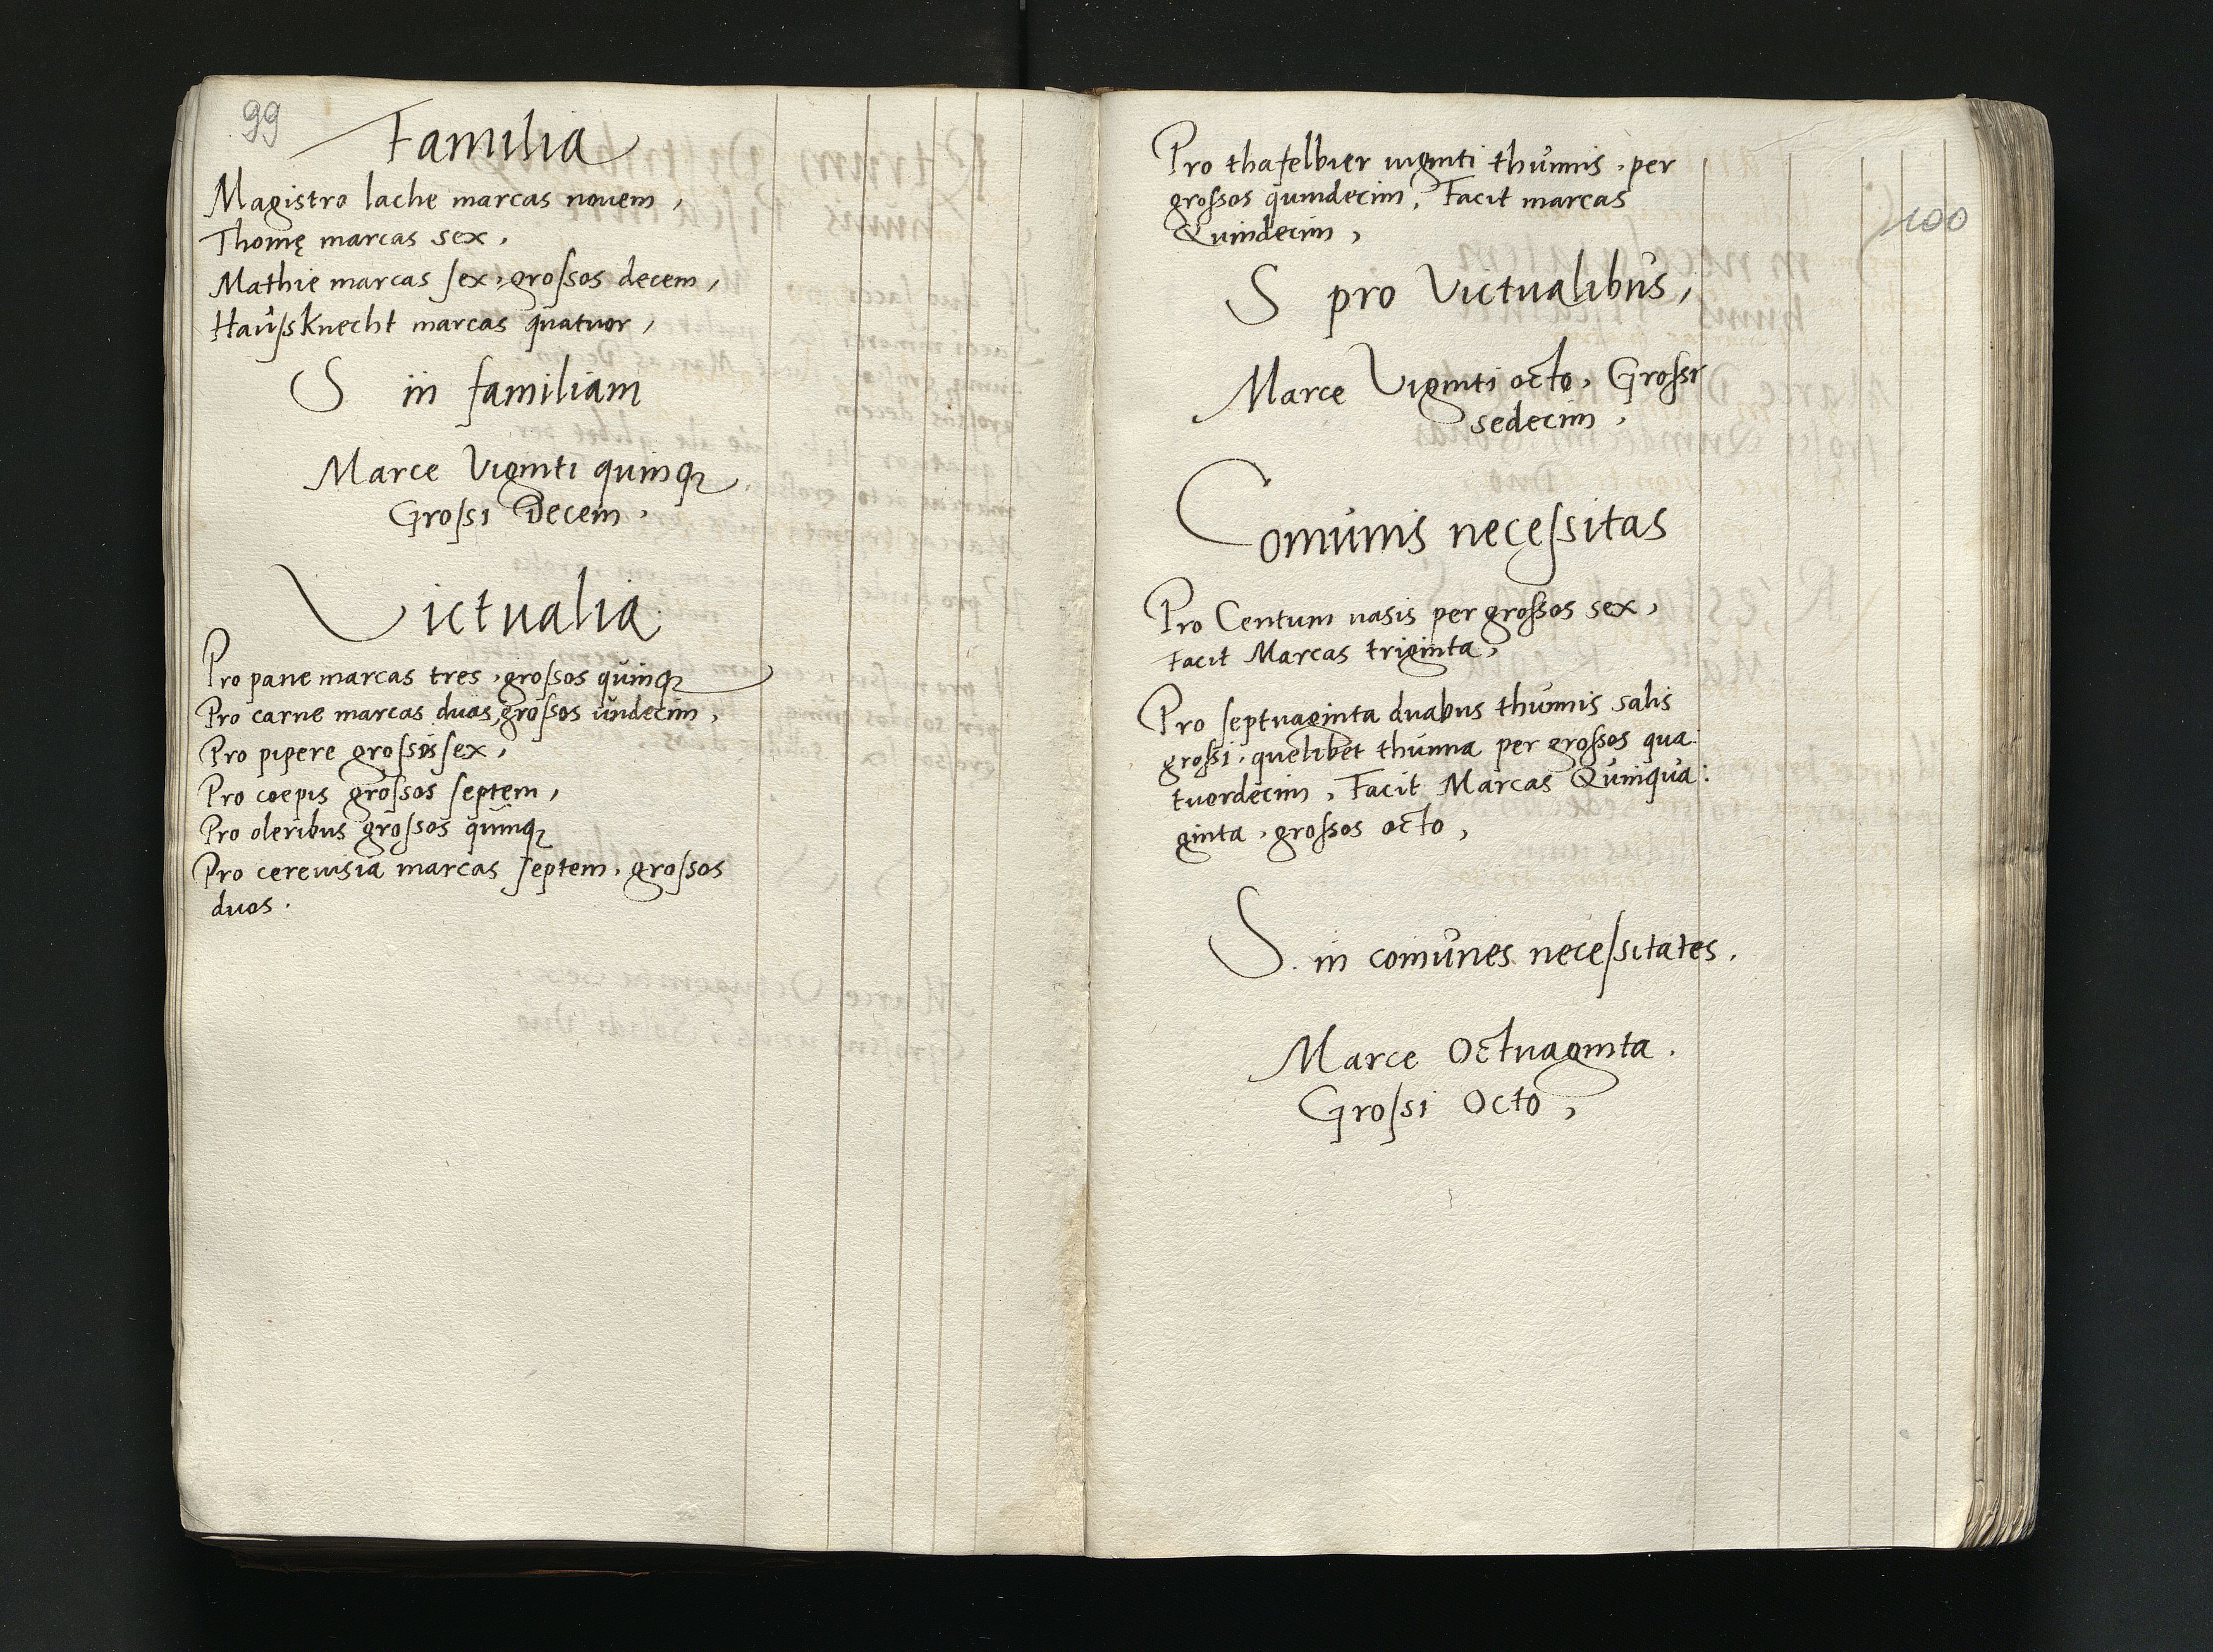 99
Familia
Magistro lache marcas nouem,
Thomę marcas sex,
Mathie marcas sex, grossos decem,
Haůssknecht marcas quatuor,
S in familiam
Marce Viginti quinqꝫ
Grossi Decem,
Victualia
Pro pane marcas tres, grossos quinqꝫ
Pro carne marcas duas, grossos undecim,
Pro pipere grossis sex,
Pro coepis grossos septem,
Pro oleribus grossos quinqꝫ
Pro cereuisia marcas septem, grossos
duos.
100
Pro thafelbier uiginti thůnnis, per
grossos quindecim, Facit marcas
Quindecim,
S pro Victualibus,
Marce Viginti octo, Grossi
sedecim,
Comunis necessitas
Pro Centum uasis per grossos sex,
Facit Marcas triginta,
Pro septuaginta duabus thunnis salis
grossi, quelibet thunna per grossos qua:
tuordecim, Facit Marcas Quinqua:
ginta, grossos octo,
S. in comunes necessitates.
Marce Octuaginta.
Grossi Octo,